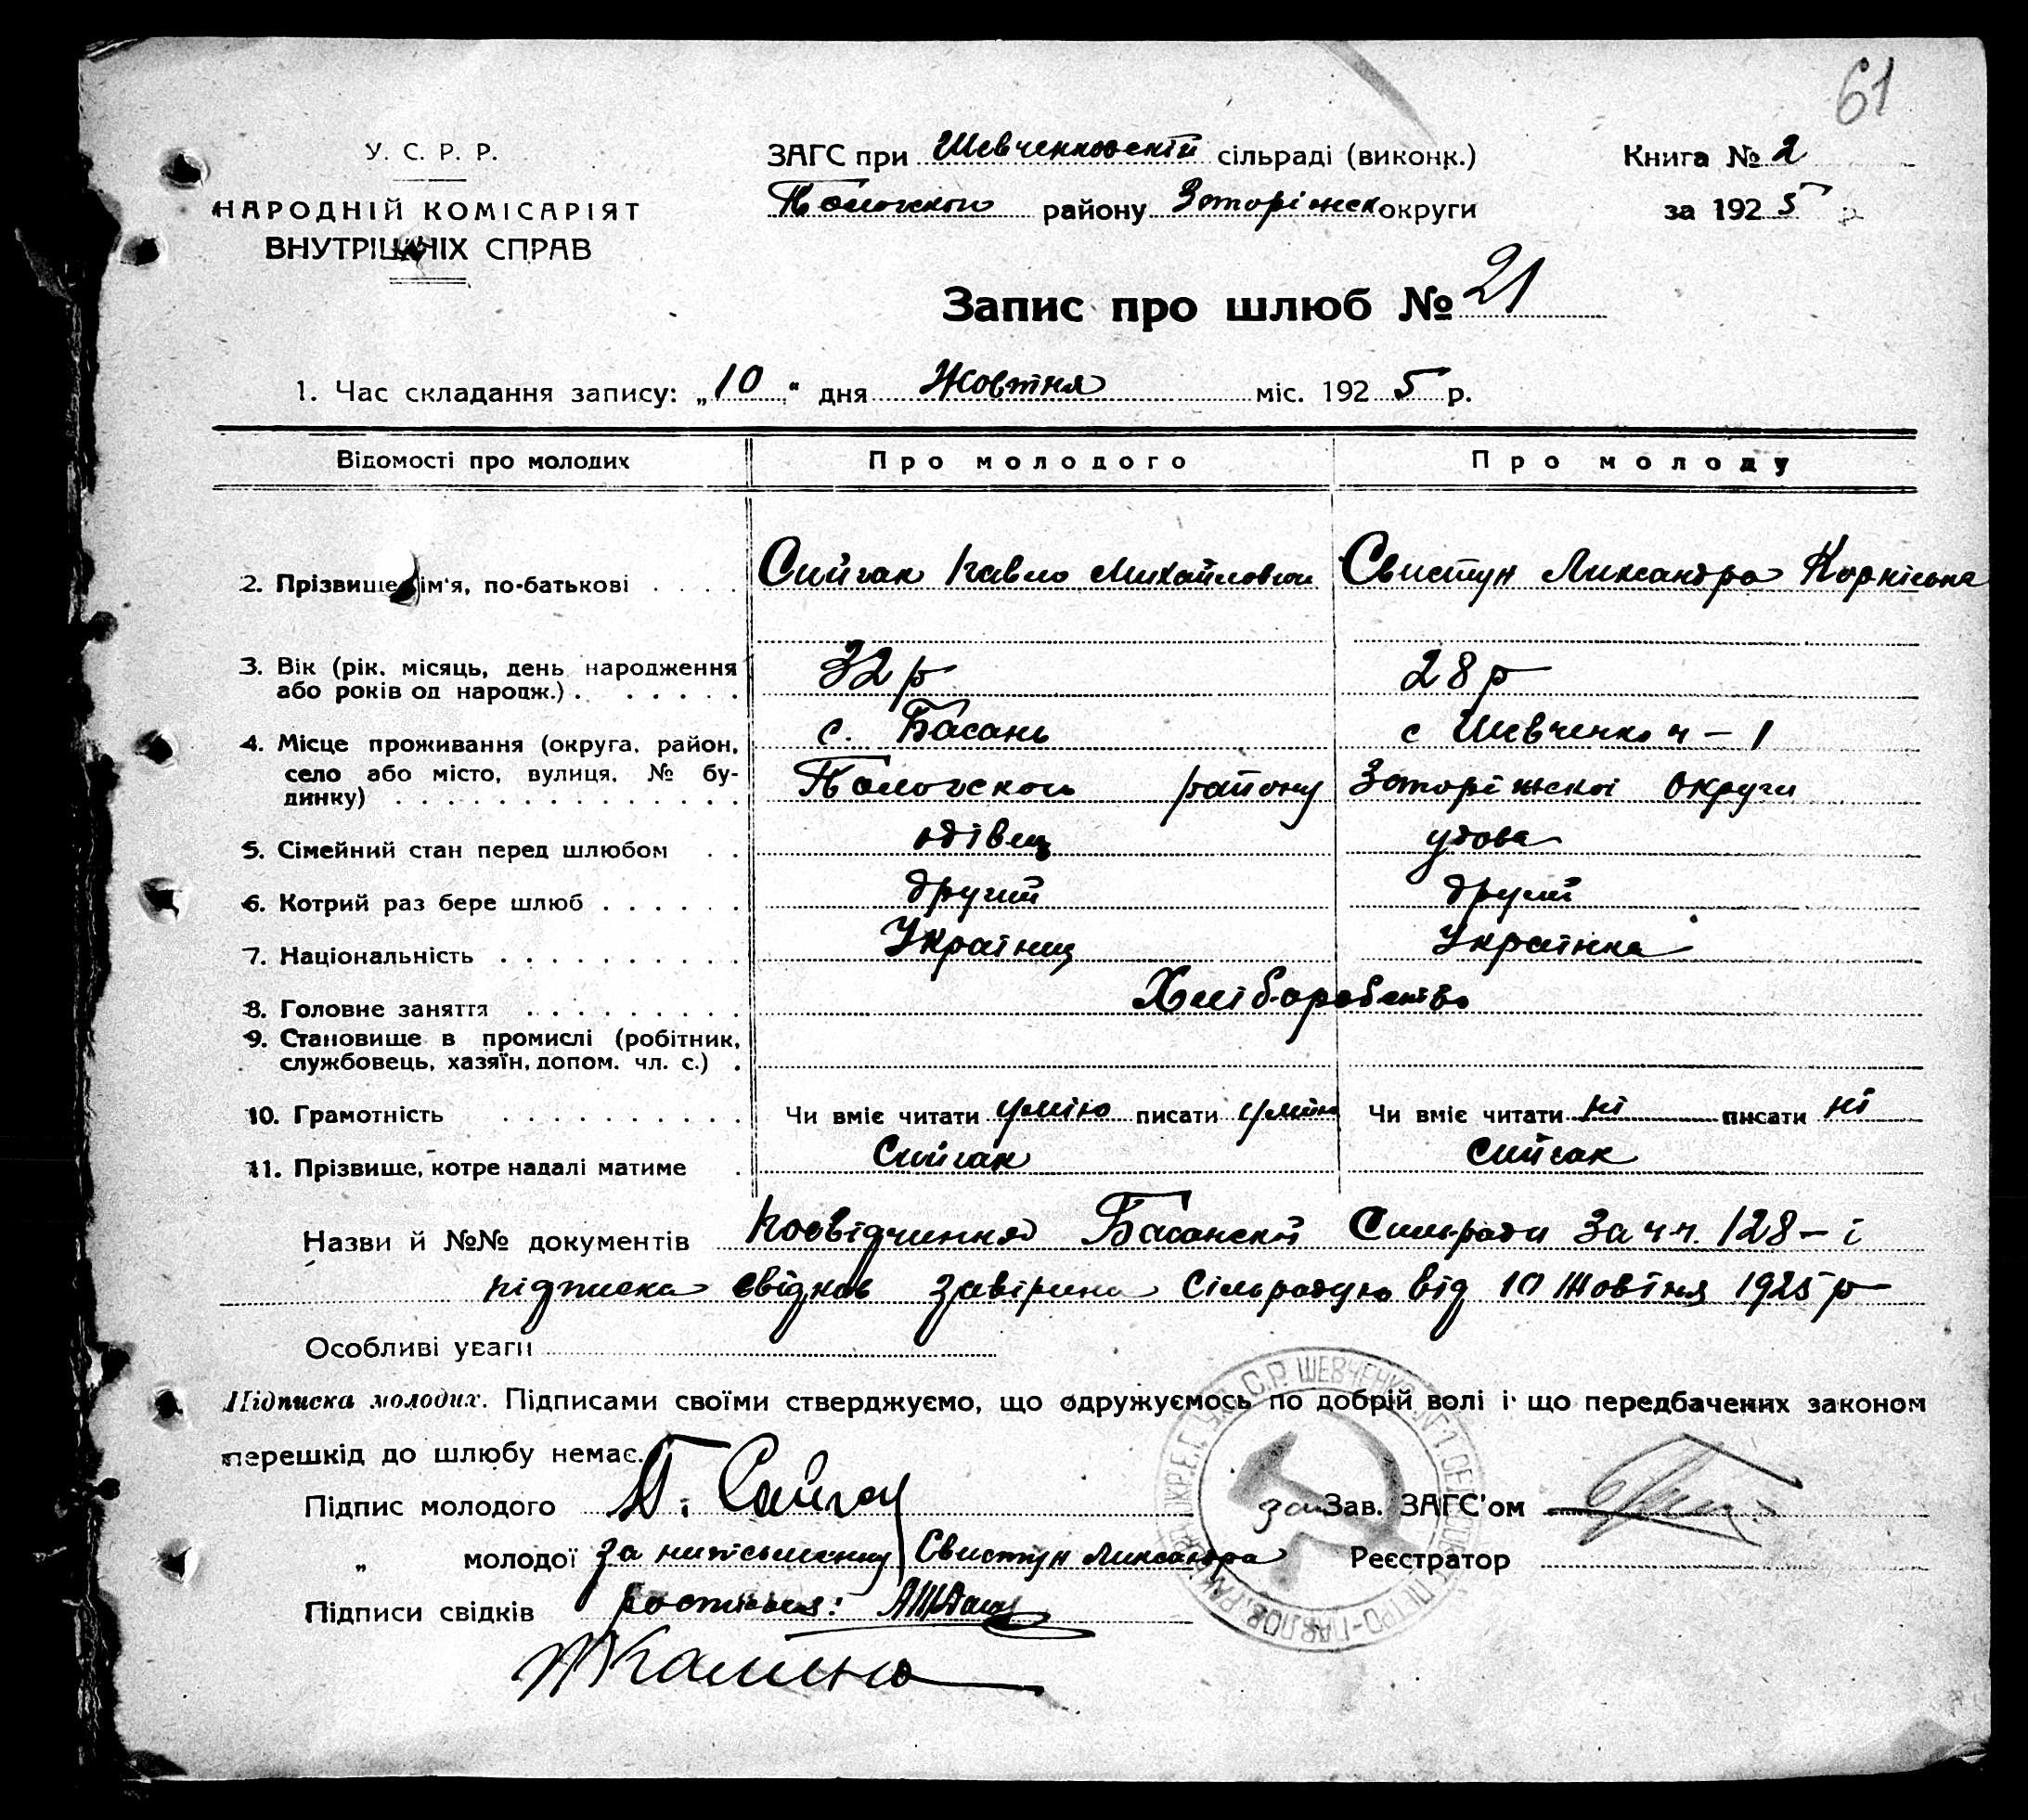 61
У. С. Р. Р.
НАРОДНІЙ КОМІСАРІЯТ
ВНУТРІШНІХ СПРАВ
ЗАГС при Шевченковскій сільраді (виконк.)
Пологского району Запоріжск округи
Книга № 2
за 1925 р
Запис про шлюб № 21
1. Час складання запису: „10" дня Жовтня міс. 1925 р.
Відомості про молодих Про молодого Про молоду
2. Прізвище, ім'я, по-батькові . . . . Сайгак Павло Михайлович Свистун Ликсандра Корнієвна
3. Вік (рік, місяць, день народження 32 р 28 р
або років од народж.) . . . . . .
4. Місце проживання (округа, район, с. Басань с Шевченко ч – 1
село або місто, вулиця, № бу- Пологского району Запоріжскої округи
динку) . . . . . . . . . . . . . .
5. Сімейний стан перед шлюбом . . одівец удова
6. Котрий раз бере шлюб . . . . . . другий другий
7. Національність . . . . . . . . . . Українец Українка
8. Головне заняття . . . . . . . . . Хліборобство
9. Становище в промислі (робітник,
службовець, хазяїн, допом. чл. с.) .
10. Грамотність . . . . . . . . . . Чи вміє читати умію писати умію Чи вміє читати ні писати ні
11. Прізвище, котре надалі матиме . Сайгак Сайгак
Назви й №№ документів Посвідчиння Басанскй Сильради за ч ч. 128 – і
підписка свідков завірина Сільрадую від 10 Жовтня 1925 р
Особливі уваги
Підписка молодих. Підписами своїми стверджуємо, що одружуємось по добрій волі і що передбачених законом
перешкід до шлюбу немає.
Підпис молодого П. Сайгак
за Зав. ЗАГС'ом
„ молодої за нипісьменну Свистун Ликсандра
Реєстратор
Підписи свідків
Калина
У.С.Р.Р. ШЕВЧЕНК. №1 ПЕТРО-ПАВЛОВ.